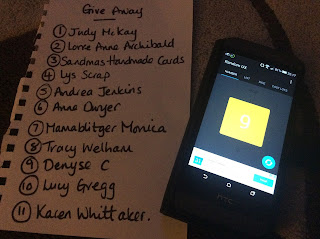 Give Away
① Judy McKay
② Lorre Anne Archibald
③ Sandmas Handmade Cards
④ Lys Scrap
⑤ Andrea Jenkins
⑥ Anne Dwyer
⑦ Mamablitger Monica
⑧ Tracy Welham
⑨ Denyse C
⑩ Lucy Gregg
⑪ Karen Whittaker.
Random UX
9
hTC